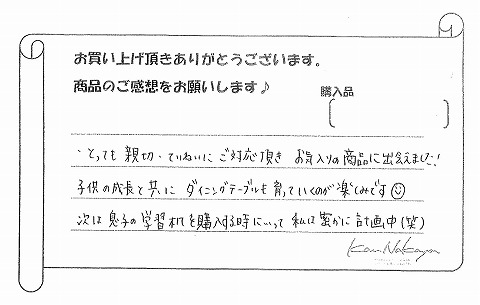 お買い上げ頂きありがとうございます。
商品のご感想をお願いします♪
購入品
・とっても 親切・ていねいに ご対応頂き お気入りの商品に出会えました!
子供の成長と共に ダイニングテーブルも 育っていくのが 楽しみです☺
次は 息子の 学習机を購入する時に…って 私は 密かに 計画中(笑)